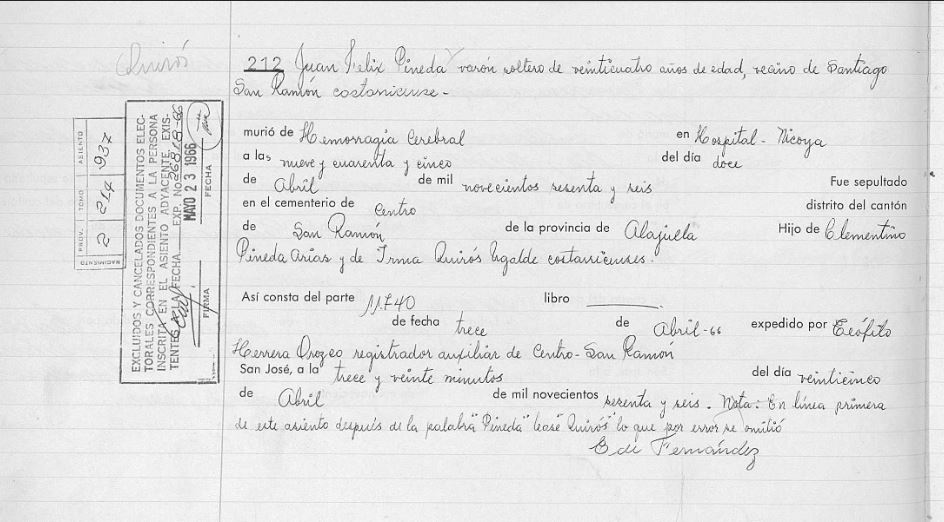 Quirós
212 Juan Felix Pineda varón soltero de veinticuatro años de edad, vecino de Santiago
San Ramón costarricense -
murió de Hemorragia Cerebral en Hospital - Nicoya
a las nueve y cuarenta y cinco del día doce
de Abril de mil novecientos sesenta y seis Fue sepultado
en el cementerio de Centro distrito del cantón
de San Ramón de la provincia de Alajuela Hijo de Clementino
Pineda Arias y de Irma Quirós Ugalde costarricenses.
Así consta del parte 11.740 libro
de fecha trece de Abril-66 expedido por Teófilo
Herrera Orozco registrador auxiliar de Centro - San Ramón
San José, a la trece y veinte minutos del día veinticinco
de Abril de mil novecientos sesenta y seis. Nota: En línea primera
de este asiento después de la palabra "Pineda" léase Quirós" lo que por error se omitió
Edi Fernández
NACIMIENTO
PROV. TOMO ASIENTO
2 214 937
EXCLUIDOS Y CANCELADOS DOCUMENTOS ELEC-
TORALES CORRESPONDIENTES A LA PERSONA
INSCRITA EN EL ASIENTO ADYACENTE, EXIS-
TENTES A LA FECHA. EXP. No. 26818-66
MAYO 23 1966
FIRMA FECHA